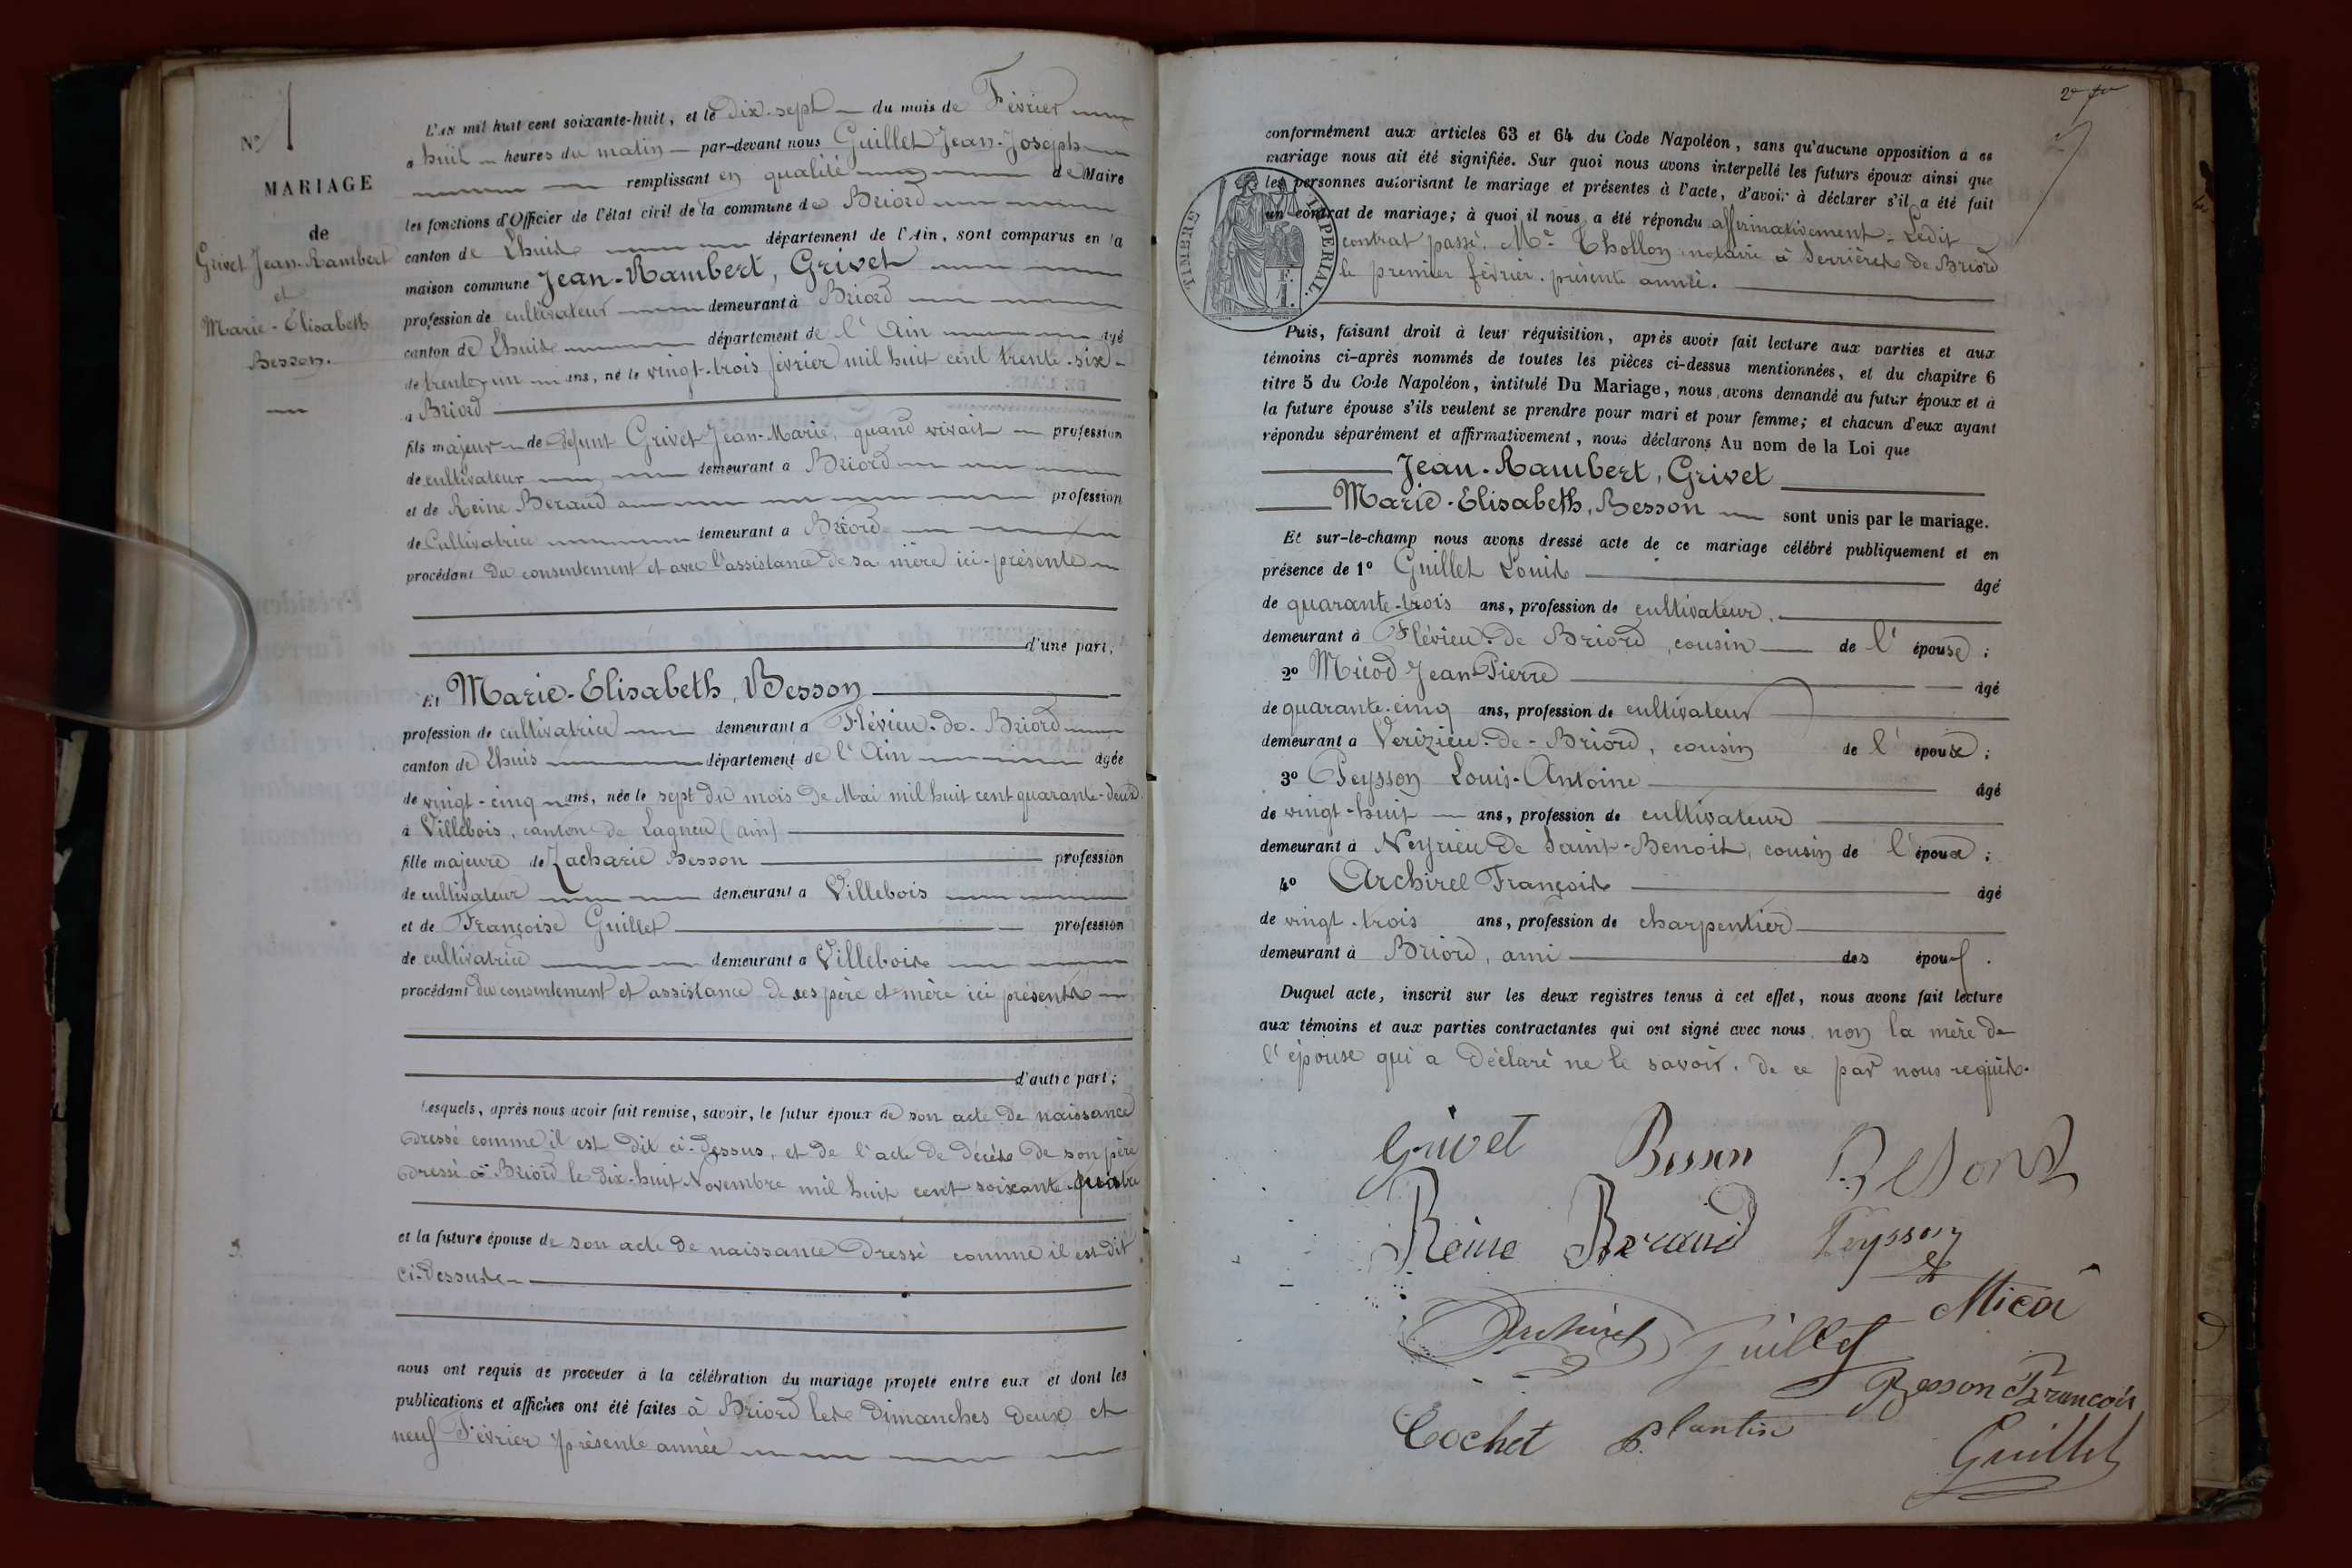 N° 1
MARIAGE
de
Grivet Jean-Rambert
et
Marie-Elisabeth
Besson.
L'AN mil huit cent soixante-huit, et le dix-sept du mois de Février
à huit heures du matin par-devant nous Guillet Jean-Joseph
remplissant en qualité de Maire
les fonctions d'Officier de l'état civil de la commune de Briord
canton de Lhuis département de l'Ain, sont comparus en la
maison commune Jean-Rambert, Grivet
profession de cultivateur demeurant à Briord
canton de Lhuis département de l'Ain âgé
de trente-un ans, né le vingt-trois février mil huit cent trente-six
à Briord
fils majeur de défunt Grivet Jean-Marie, quand vivait profession
de cultivateur demeurant à Briord
et de Reine Beraud profession
de Cultivatrice demeurant à Briord
procédant du consentement et avec l'assistance de sa mère ici-présente
d'une part,
Et Marie-Elisabeth, Besson
profession de cultivatrice demeurant à Flévieu-de-Briord
canton de Lhuis département de l'Ain âgée
de vingt-cinq ans, née le sept du mois de Mai mil huit cent quarante-deux
à Villebois, canton de Lagnieu (ain)
fille majeure de Zacharie Besson profession
de cultivateur demeurant à Villebois
et de Françoise Guillet profession
de cultivatrice demeurant à Villebois
procédant du consentement et assistance de ses père et mère ici présents
d'autre part;
Lesquels, après nous avoir fait remise, savoir, le futur époux de son acte de naissance
dressé comme il est dit ci-dessus, et de l'acte de décès de son père
dressé à Briord le dix-huit Novembre mil huit cent soixante-quatre
et la future épouse de son acte de naissance dressé comme il est dit
ci-dessus
nous ont requis de procéder à la célébration du mariage projeté entre eux et dont les
publications et affiches ont été faites à Briord les Dimanches deux et
neuf Février présente année
conformément aux articles 63 et 64 du Code Napoléon, sans qu'aucune opposition à ce
mariage nous ait été signifiée. Sur quoi nous avons interpellé les futurs époux ainsi que
les personnes autorisant le mariage et présentes à l'acte, d'avoir à déclarer s'il a été fait
un contrat de mariage; à quoi il nous a été répondu affirmativement. Ledit
contrat passé, Me Thollon notaire à Serrières de Briord
le premier février, présente année.
TIMBRE IMPERIAL.
1 F.
Puis, faisant droit à leur réquisition, après avoir fait lecture aux parties et aux
témoins ci-après nommés de toutes les pièces ci-dessus mentionnées, et du chapitre 6
titre 5 du Code Napoléon, intitulé Du Mariage, nous avons demandé au futur époux et à
la future épouse s'ils veulent se prendre pour mari et pour femme; et chacun d'eux ayant
répondu séparément et affirmativement, nous déclarons Au nom de la Loi que
Jean-Rambert, Grivet
Marie-Elisabeth, Besson sont unis par le mariage.
Et sur-le-champ nous avons dressé acte de ce mariage célébré publiquement et en
présence de 1° Guillet Louis âgé
de quarante-trois ans, profession de cultivateur,
demeurant à Flévieu-de Briord, cousin de l'épouse;
2° Micod Jean-Pierre âgé
de quarante-cinq ans, profession de cultivateur
demeurant à Verizieu-de-Briord, cousin de l'épouse;
3° Peysson Louis-Antoine âgé
de vingt-huit ans, profession de cultivateur
demeurant à Neyrieu de Saint-Benoit, cousin de l'époux;
4° Archirel François âgé
de vingt-trois ans, profession de charpentier
demeurant à Briord, ami des époux.
Duquel acte, inscrit sur les deux registres tenus à cet effet, nous avons fait lecture
aux témoins et aux parties contractantes qui ont signé avec nous, non la mère de
l'épouse qui a déclaré ne le savoir. de ce par nous requis.
Grivet Besson Besson
Reine Beraud Peysson
Archirel Guillet Micod
Besson François
Cochet Plantin Guillet